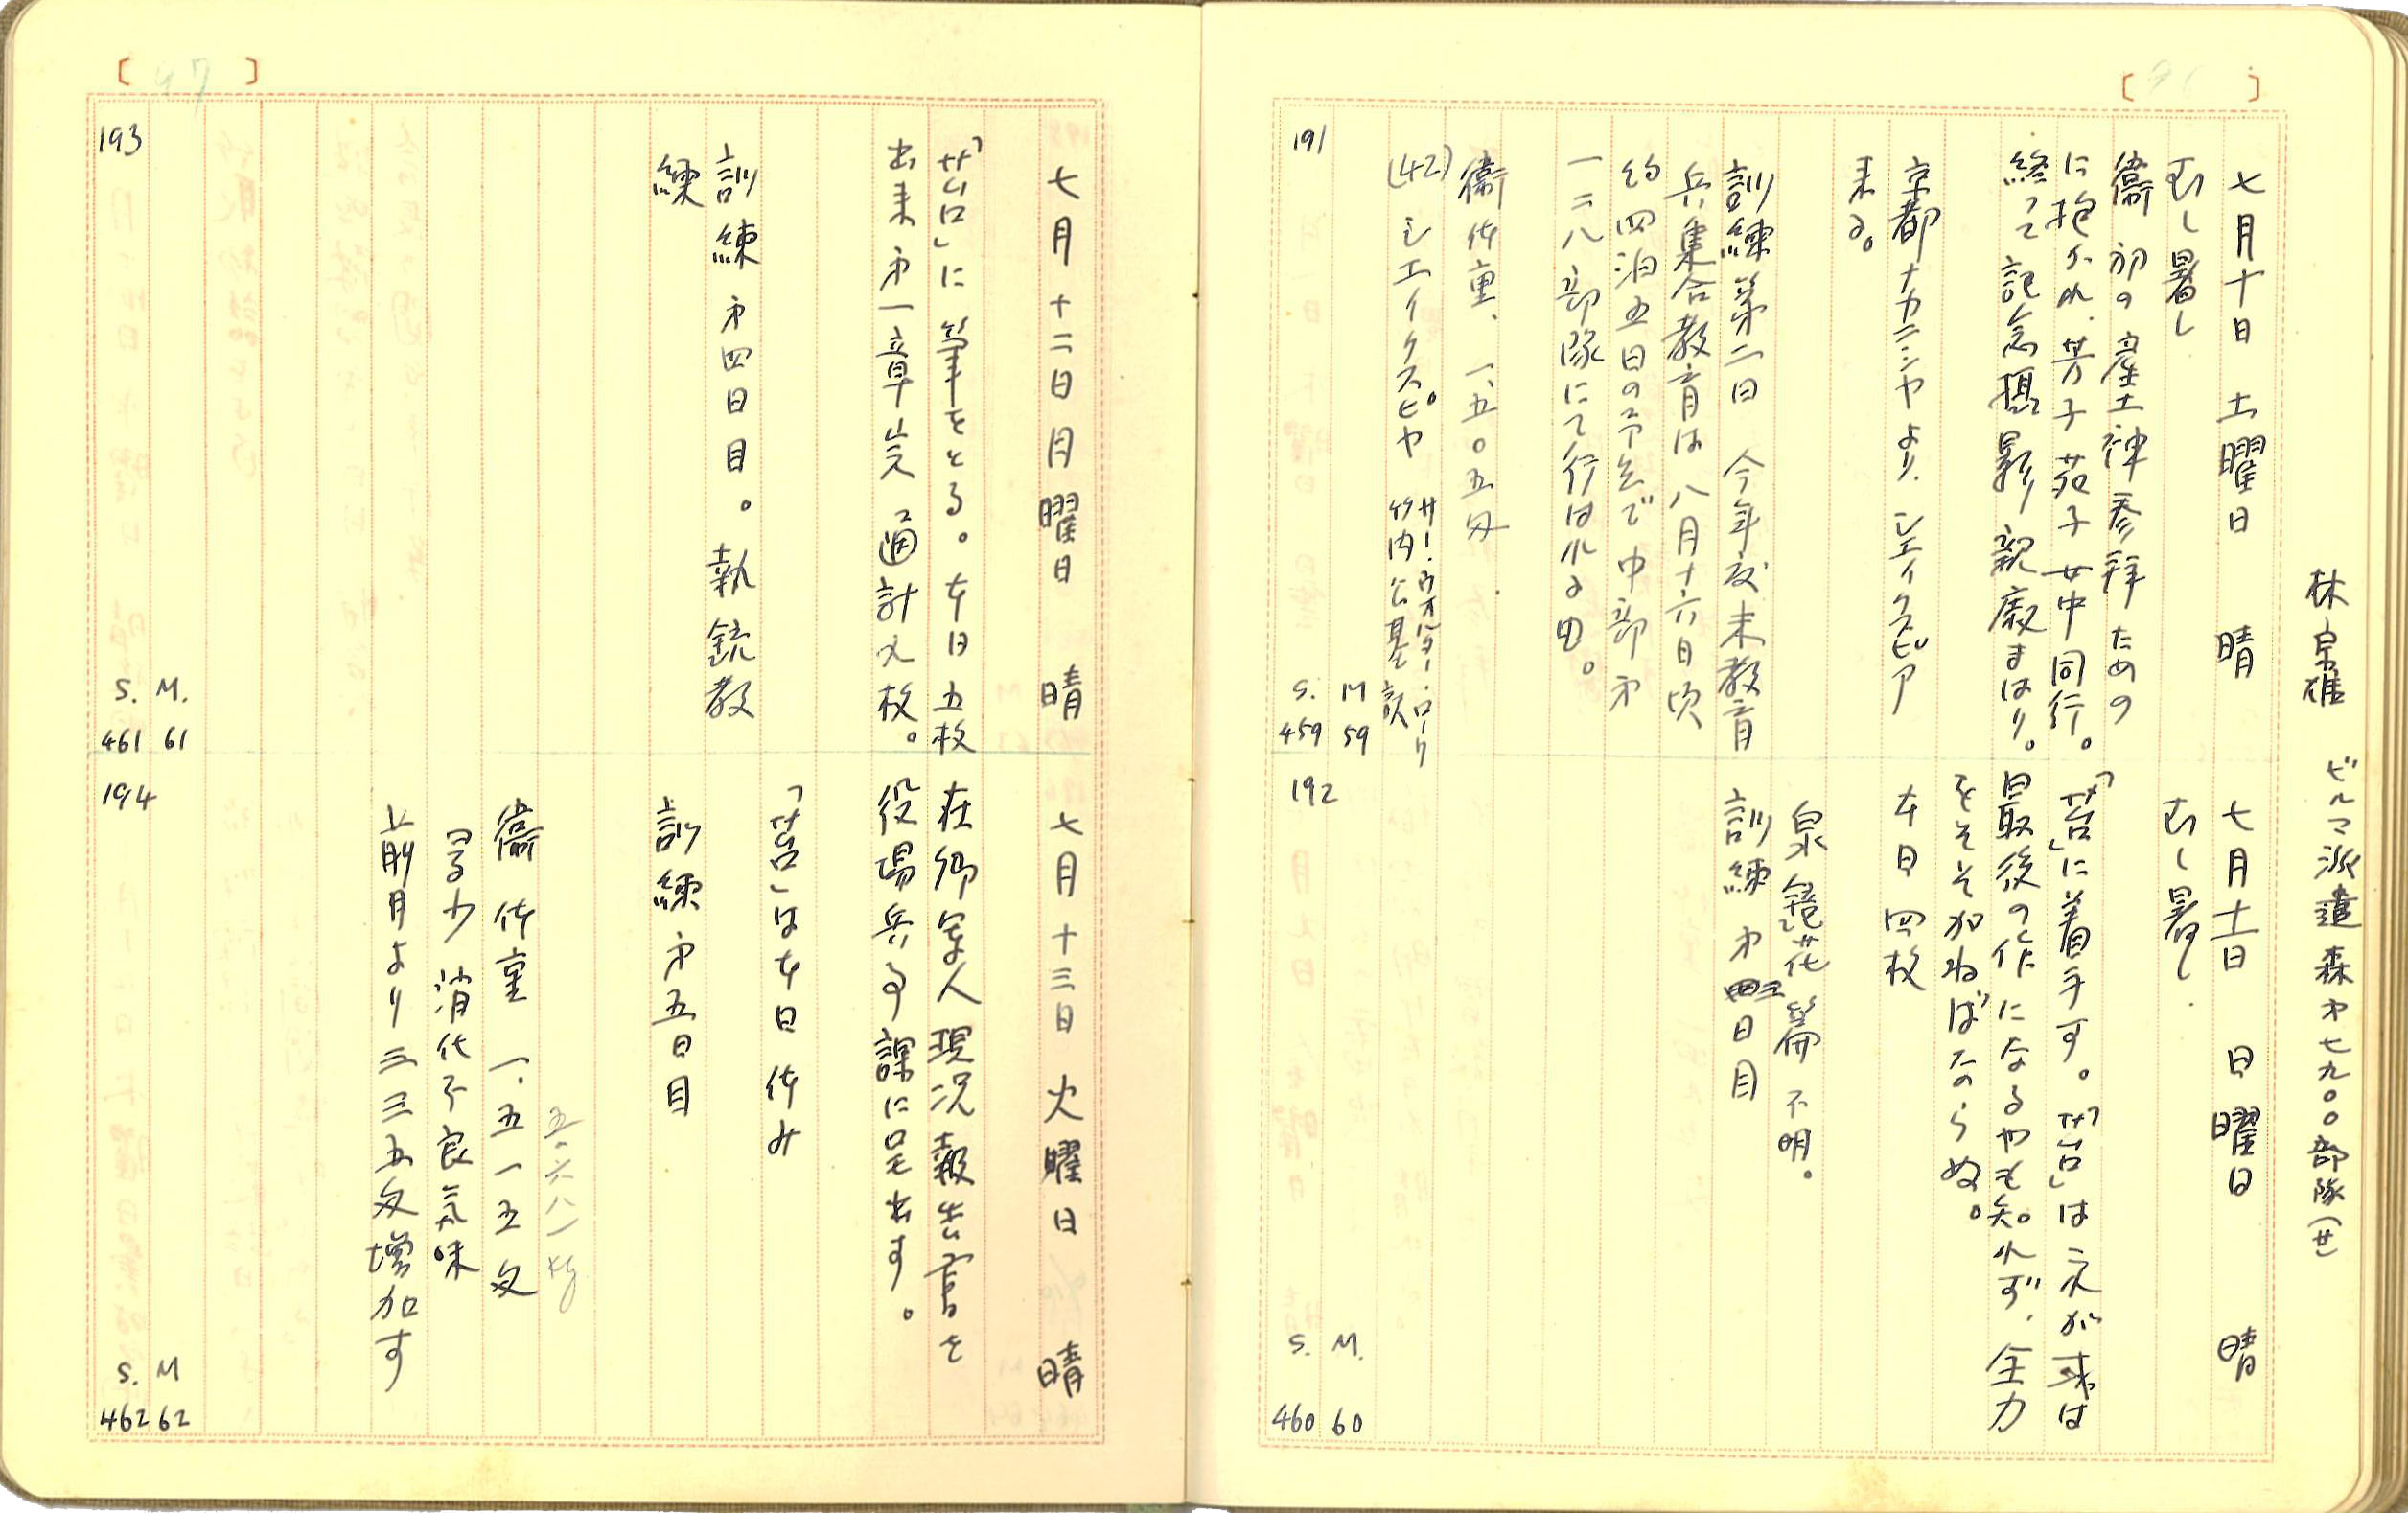 [96]
林宗雄 ビルマ派遣森オ七九〇〇部隊(せ)
七月十日 土曜日 晴
むし暑し
衞 初の産土神参拜ための
に抱かれ、芳子 苑子 女中同行。
終って記念撮影 親廠まはり。
京都ナカニシヤより、シェイクスピア
来る。
訓練第二日 今年度未教育
兵集合教育は 八月十六日頃
約四泊五日の予定で中部オ
一二八部隊にて行はれる由。
衞 体重、一、五〇五匁
(42) シエイクスピヤ サー・ウオルター・ローリ
竹内公基 訳
191
M 59
S. 459
七月十一日 日曜日 晴
むし暑し
「苔」に着手す。「苔」はわが或は
最後の作になるやも知れず、全力
をそそがねばならぬ。
本日四枚
泉鏡花篇 不明。
訓練オ三日目
192
M. 60
S. 460
[97]
七月十二日 月曜日 晴
「苔」に筆をとる。本日五枚
出来オ一章完 通計九枚。
訓練オ四日目。執銃教
練
193
M. 61
S. 461
七月十三日 火曜日 晴
在郷軍人現況報告書を
役場兵事課に呈出す。
「苔」は本日休み
訓練オ五日目
五・六八一
衞 体重 一.五一五匁
多少 消化不良気味
前月より 三三五匁増加す
194
M 62
S. 462